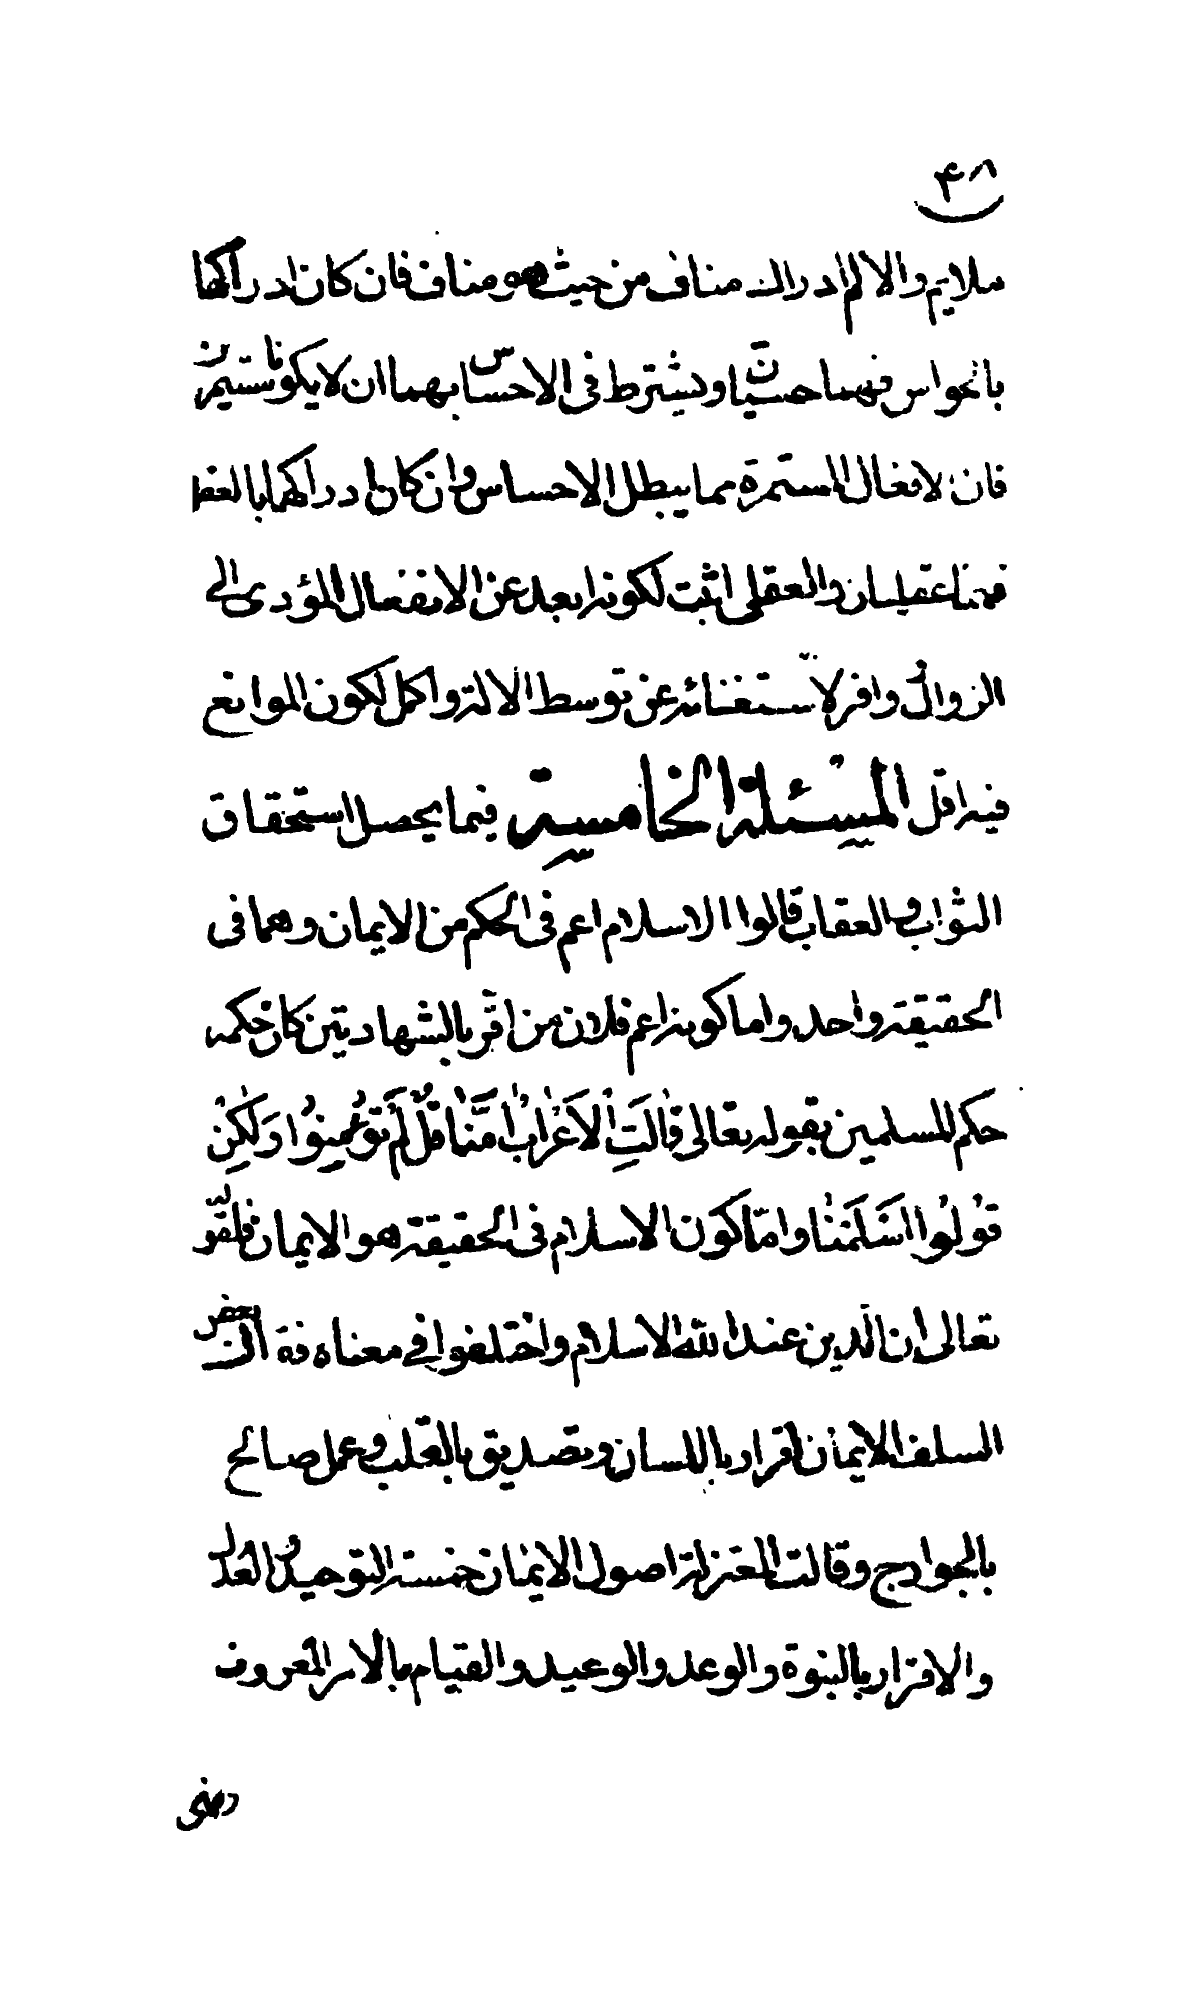 ۴۸
ملايم والالم ادراك مناف من حيث هو مناف فان كان ادراكهما
بالحواس فهما حسيان ويشترط فى الاحساس بهما ان لا يكونا مستمرين
فان لانفعال المستمرة مما يبطل الاحساس وان كان ادراكهما بالعقل
فهما عقليان والعقلى اثبت لكونه ابعد عن الانفعال المؤدى الى
الزوال وافر لاستغنائه عن توسط الالة واكمل لكون الموانع
فيه اقل المسئلة الخامسة فيما يحصل استحقاق
الثواب والعقاب قالوا الاسلام اعم فى الحكم من الايمان وهما فى
الحقيقة واحد واما كونه اعم فلان من اقر بالشهادتين كان حكمه
حكم المسلمين بقوله تعالى قَالَتِ الْاَعْرَابُ اٰمَنَّا قُلْ لَمْ تُؤْمِنُوا وَلٰكِنْ
قُوْلُوا اَسْلَمْنَا وامّا كون الاسلام فى الحقيقة هو الايمان فلقوله
تعالى ان الدين عند الله الاسلام واختلفوا فى معناه فقال بعض
السلف الايمان اقرار باللسان وتصديق بالقلب وعمل صالح
بالجوارح وقالت المعتزلة اصول الايمان خمسة التوحيد والعدل
والاقرار بالنبوة والوعد والوعيد والقيام بالامر المعروف